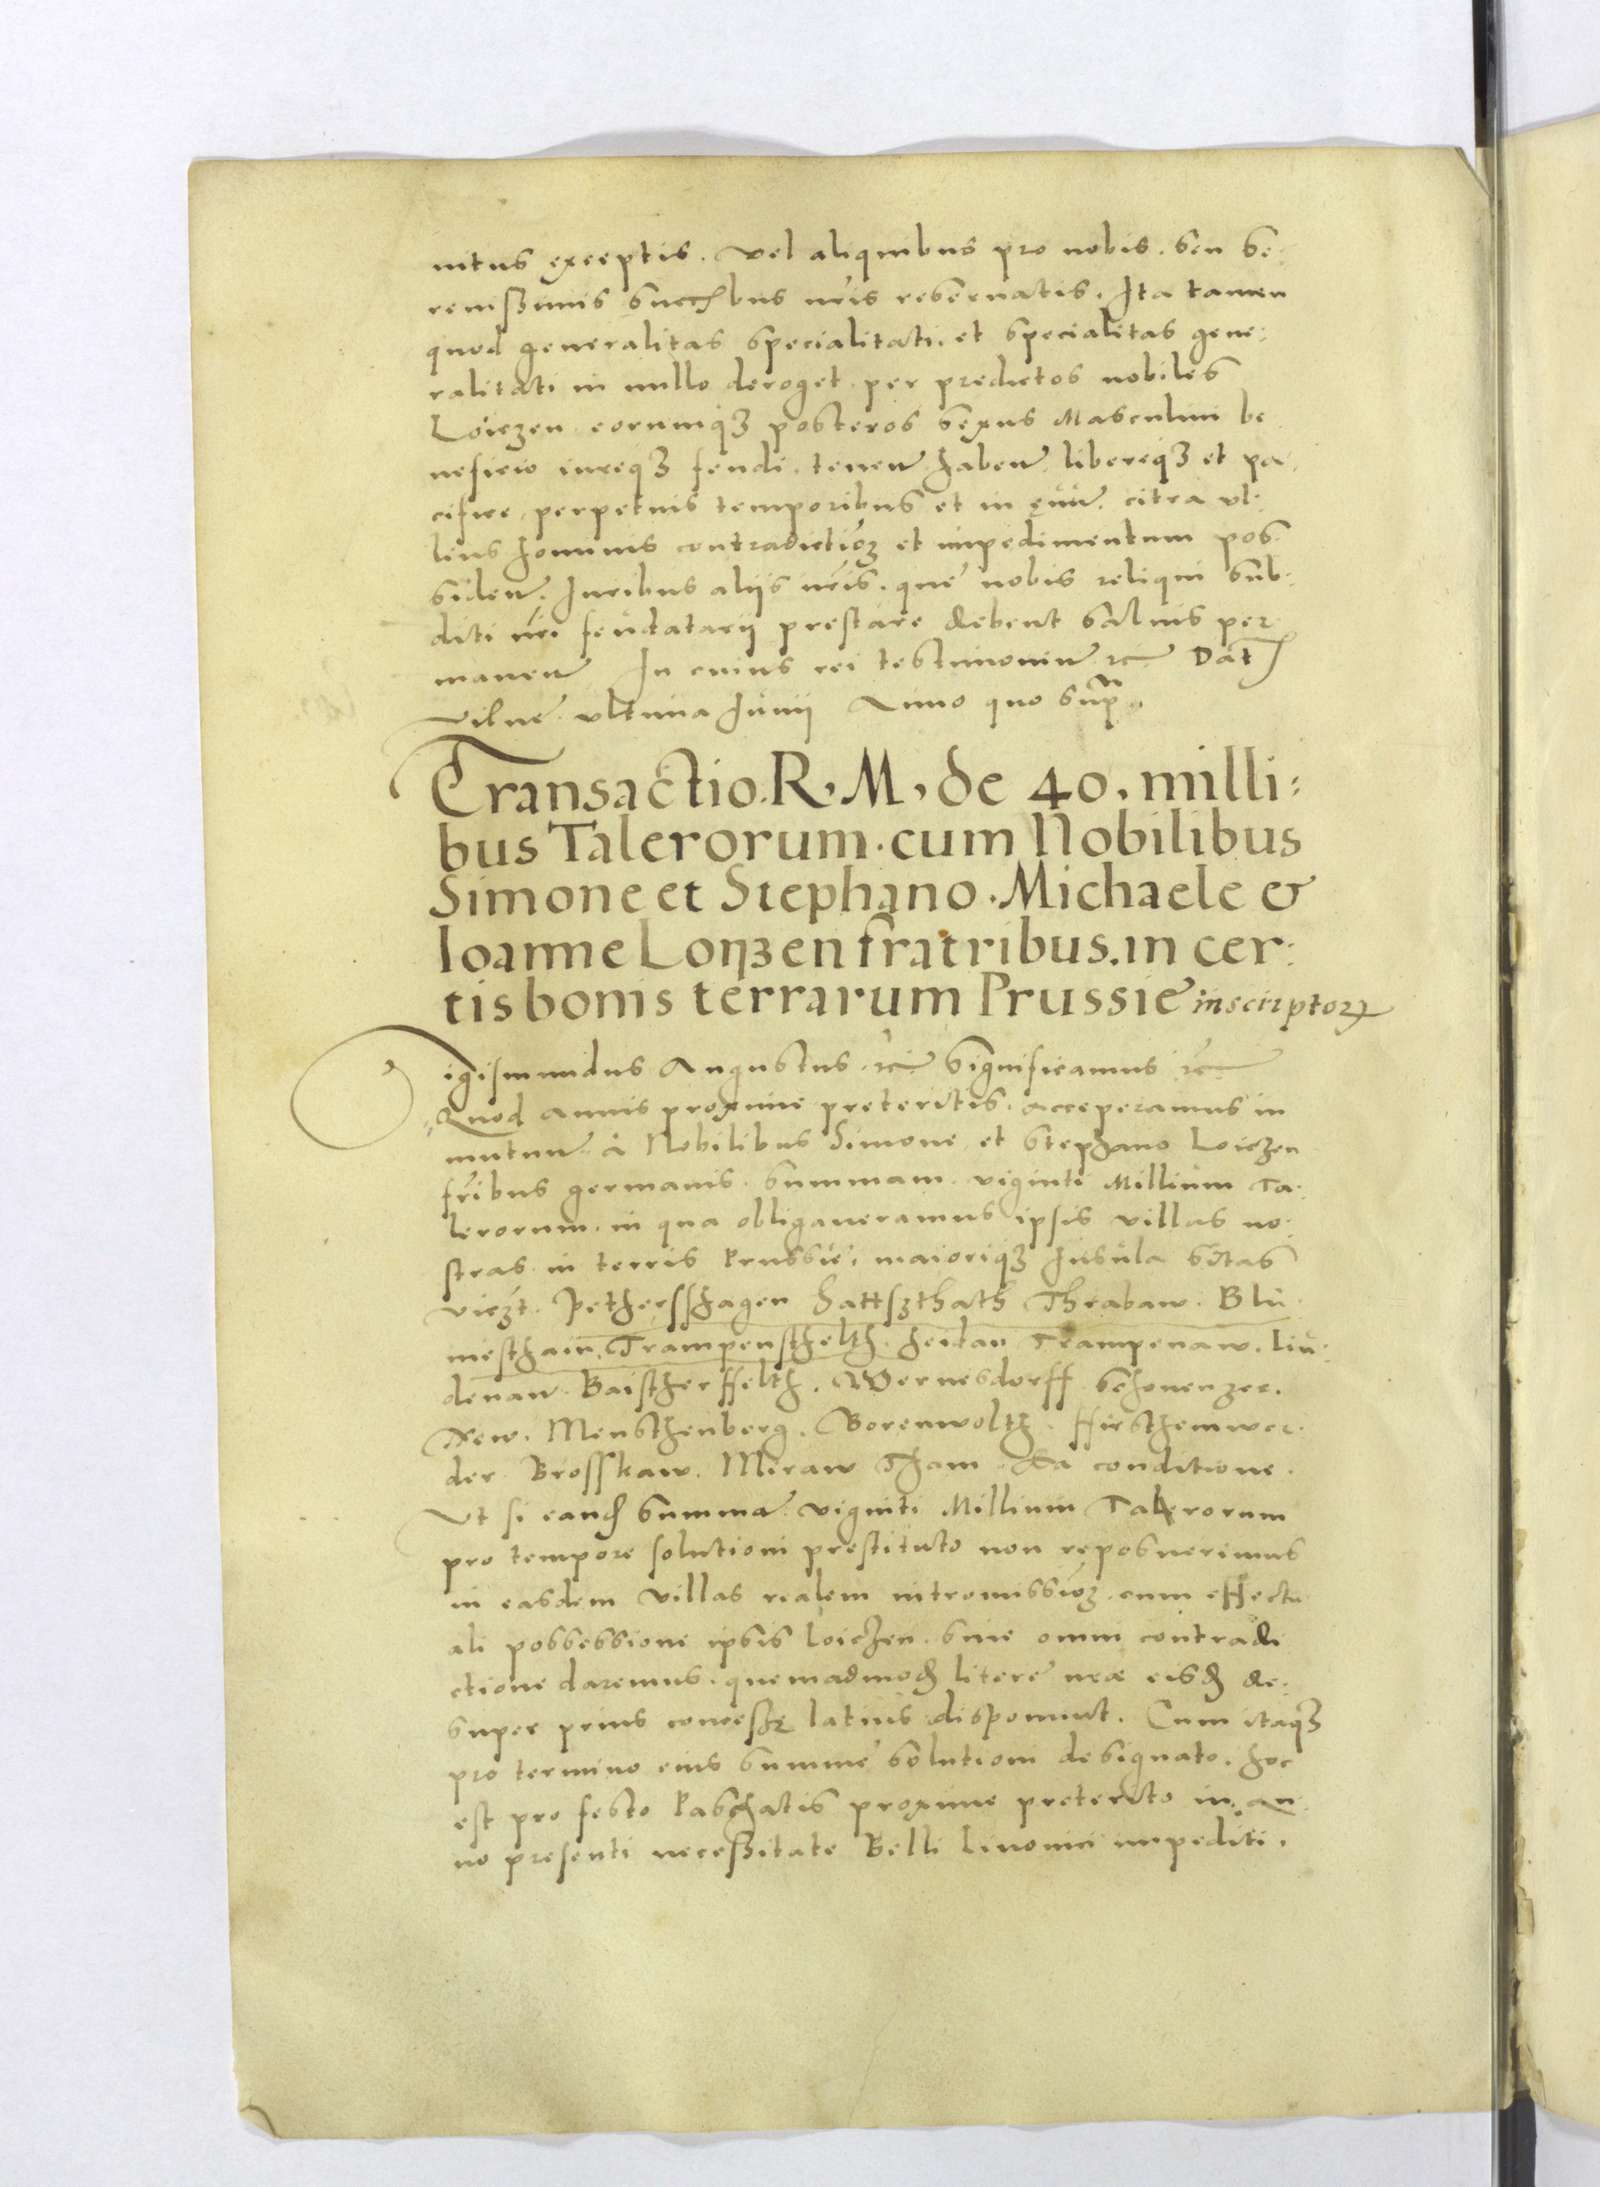 nitus exceptis. vel aliquibus pro nobis. seu Se:
renissimis succribus nris reservatis. Ita tamen
quod generalitas specialitati. et specialitas gene:
ralitati in nullo deroget. per predictos nobiles
Loiczen eorumqȝ posteros sexus Masculini be
neficio iureqȝ feudi. tenen. haben. libereqȝ et pa
cifice perpetuis temporibus et in evum. citra ul:
lius hominis contradictioȝ et impedimentum pos
siden. Iuribus aliis nris. que nobis reliqui sub:
diti nri feudatarii prestare debent salvis per
manen In cuius rei testimonium rc Dat
Vilne ultima Iunii Anno quo sup.
Transactio. R. M, de 40, milli:
bus Talerorum. cum Nobilibus
Simone et Stephano. Michaele &
Ioanne Loijzen fratribus. in cer:
tis bonis terrarum Prussie inscriptorꝝ
igismundus Augustus. rc Significamus rc
Quod annis proxime preteritis. acceperamus in
mutuum a Nobilibus Simone et Stephano Loiczen
fribus germanis. summam. viginti Millium Ta:
lerorum. in qua obligaveramus ipsis villas no:
stras in terris Prussie. maioriqȝ Insula sitas
viczt. Pethersshagen Sattszthath Thrabaw. Blu
mesthain. Trampensthelth. heidau Trampenaw. Lin:
denaw. Baistherffelth. Wernesdorff Schonenzer.
New. Mensthenberg. Borenwolth. Firsthemwer.
der. Brosskaw. Miraw Tham Ea conditione.
Ut si eand summam viginti Millium Talerorum
pro tempore solutioni prestituto non reposuerimus
in easdem villas realem intromissioȝ. cum effectu
ali possessione ipsis Loiczen. sine omni contradi
ctione daremus. quemadmod litere nrae eisd de.
super prius concesse latius disponunt. Cum itaqȝ
pro termino eius summe solutioni designato. hoc
est pro festo Paschatis proxime preterito in. an
no presenti necessitate Belli Livonici impediti.